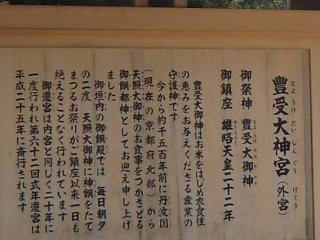 とようけだいじんぐう げくう
豊受大神宮(外宮)
とようけのおおみかみ
御祭神 豊受大御神
御鎮座 雄略天皇二十二年
豊受大御神はお米をはじめ衣食住
の恵みをお与えくださる産業の
守護神です
今から約千五百年前に丹波国
(現在の京都府北部)から
天照大御神のお食事をつかさどる
御饌都神としてお迎え申し上げ
ました
御垣内の御饌殿では 毎日朝夕
の二度 天照大御神に神饌をたて
まつるお祭りがご鎮座以来一日も
絶えることなく行われています
御遷宮は内宮と同じく二十年に
一度行われ第六十二回式年遷宮は
平成二十五年に斎行されます